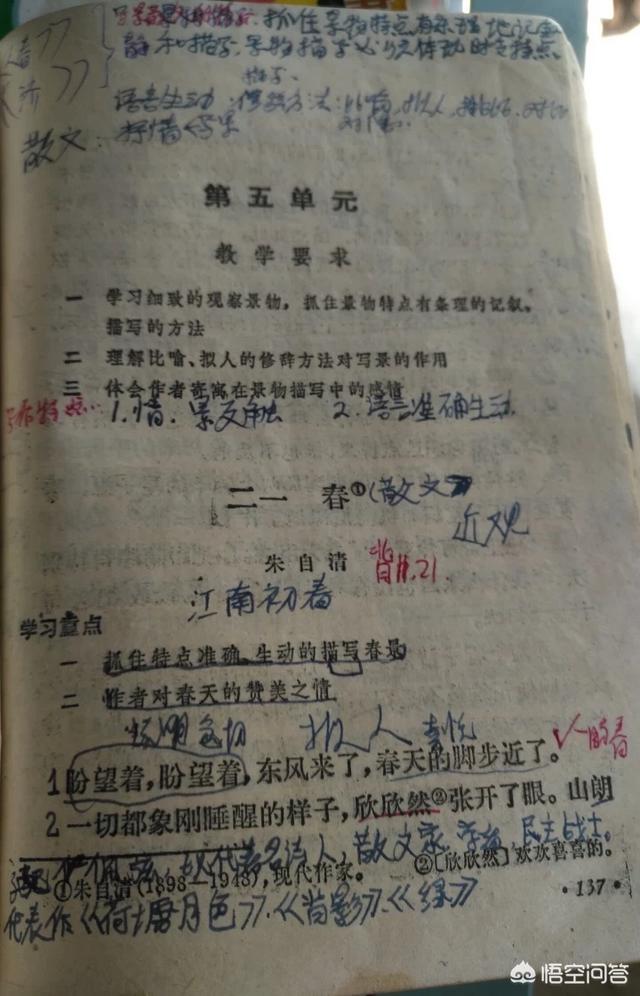 抓住景物特点有条理地记叙
和描写,景物描写
语言生动 修辞方法:比喻,拟人,排比,对比
散文: 抒情
第五单元
教学要求
一 学习细致的观察景物,抓住景物特点有条理的记叙、
描写的方法
二 理解比喻、拟人的修辞方法对写景的作用
三 体会作者寄寓在景物描写中的感情
写作特点: 1.情、景交融 2.语言准确生动
二一 春①(散文)
近观
朱自清 背11.21
江南初春
学习重点
一 抓住特点准确、生动的描写春景
二 作者对春天的赞美之情
拟人 喜悦
1盼望着,盼望着,东风来了,春天的脚步近了。
2一切都象刚睡醒的样子,欣欣然②张开了眼。山朗
现代著名诗人,散文家,学者,民主战士。
①朱自清(1898—1948),现代作家。 ②〔欣欣然〕欢欢喜喜的。
代表作《荷塘月色》.《背影》.《绿》
·137·
悟空问答